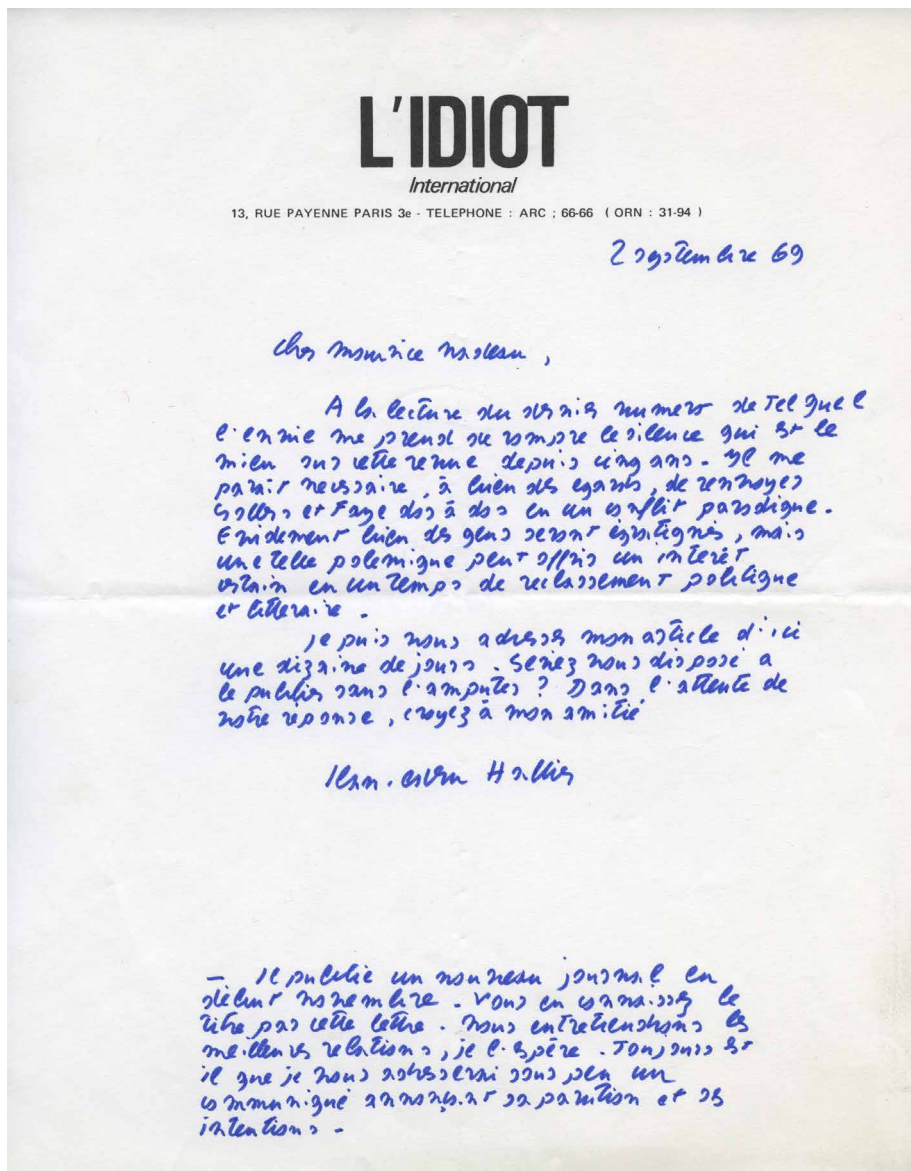 L'IDIOT
International
13, RUE PAYENNE PARIS 3e - TELEPHONE : ARC ; 66-66 ( ORN : 31-94 )
2 septembre 69
Cher Maurice Nadeau,
A la lecture du dernier numero de Tel Quel
l'envie me prend de rompre le silence qui est le
mien sur cette revue depuis cinq ans. Il me
parait necessaire, à bien des egards, de renvoyer
Sollers et Faye dos à dos en un conflit parodique.
Evidement bien des gens seront égratignés, mais
une telle polemique peut offrir un interêt
certain en un temps de reclassement politique
et litteraire.
Je puis vous adresser mon article d'ici
une dizaine de jours. Seriez vous disposé a
le publier sans l'amputer ? Dans l'attente de
votre réponse, croyez à mon amitié
Jean-Edern Hallier
- Je publie un nouveau journal en
début novembre. Vous en connaissez le
titre par cette lettre. Nous entretiendrons les
meilleures relations, je l'espère. Toujours est
il que je vous adresserai sous peu un
communiqué annonçant sa parution et ses
intentions -